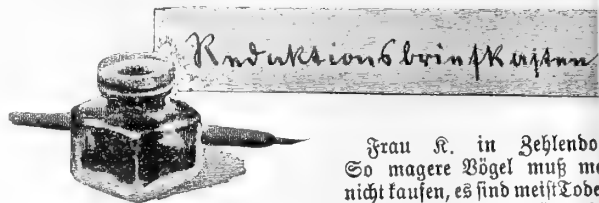 Redaktionsbriefkasten
Frau K. in Zehlendo
So magere Vögel muß m
nicht kaufen, es sind meist Tode